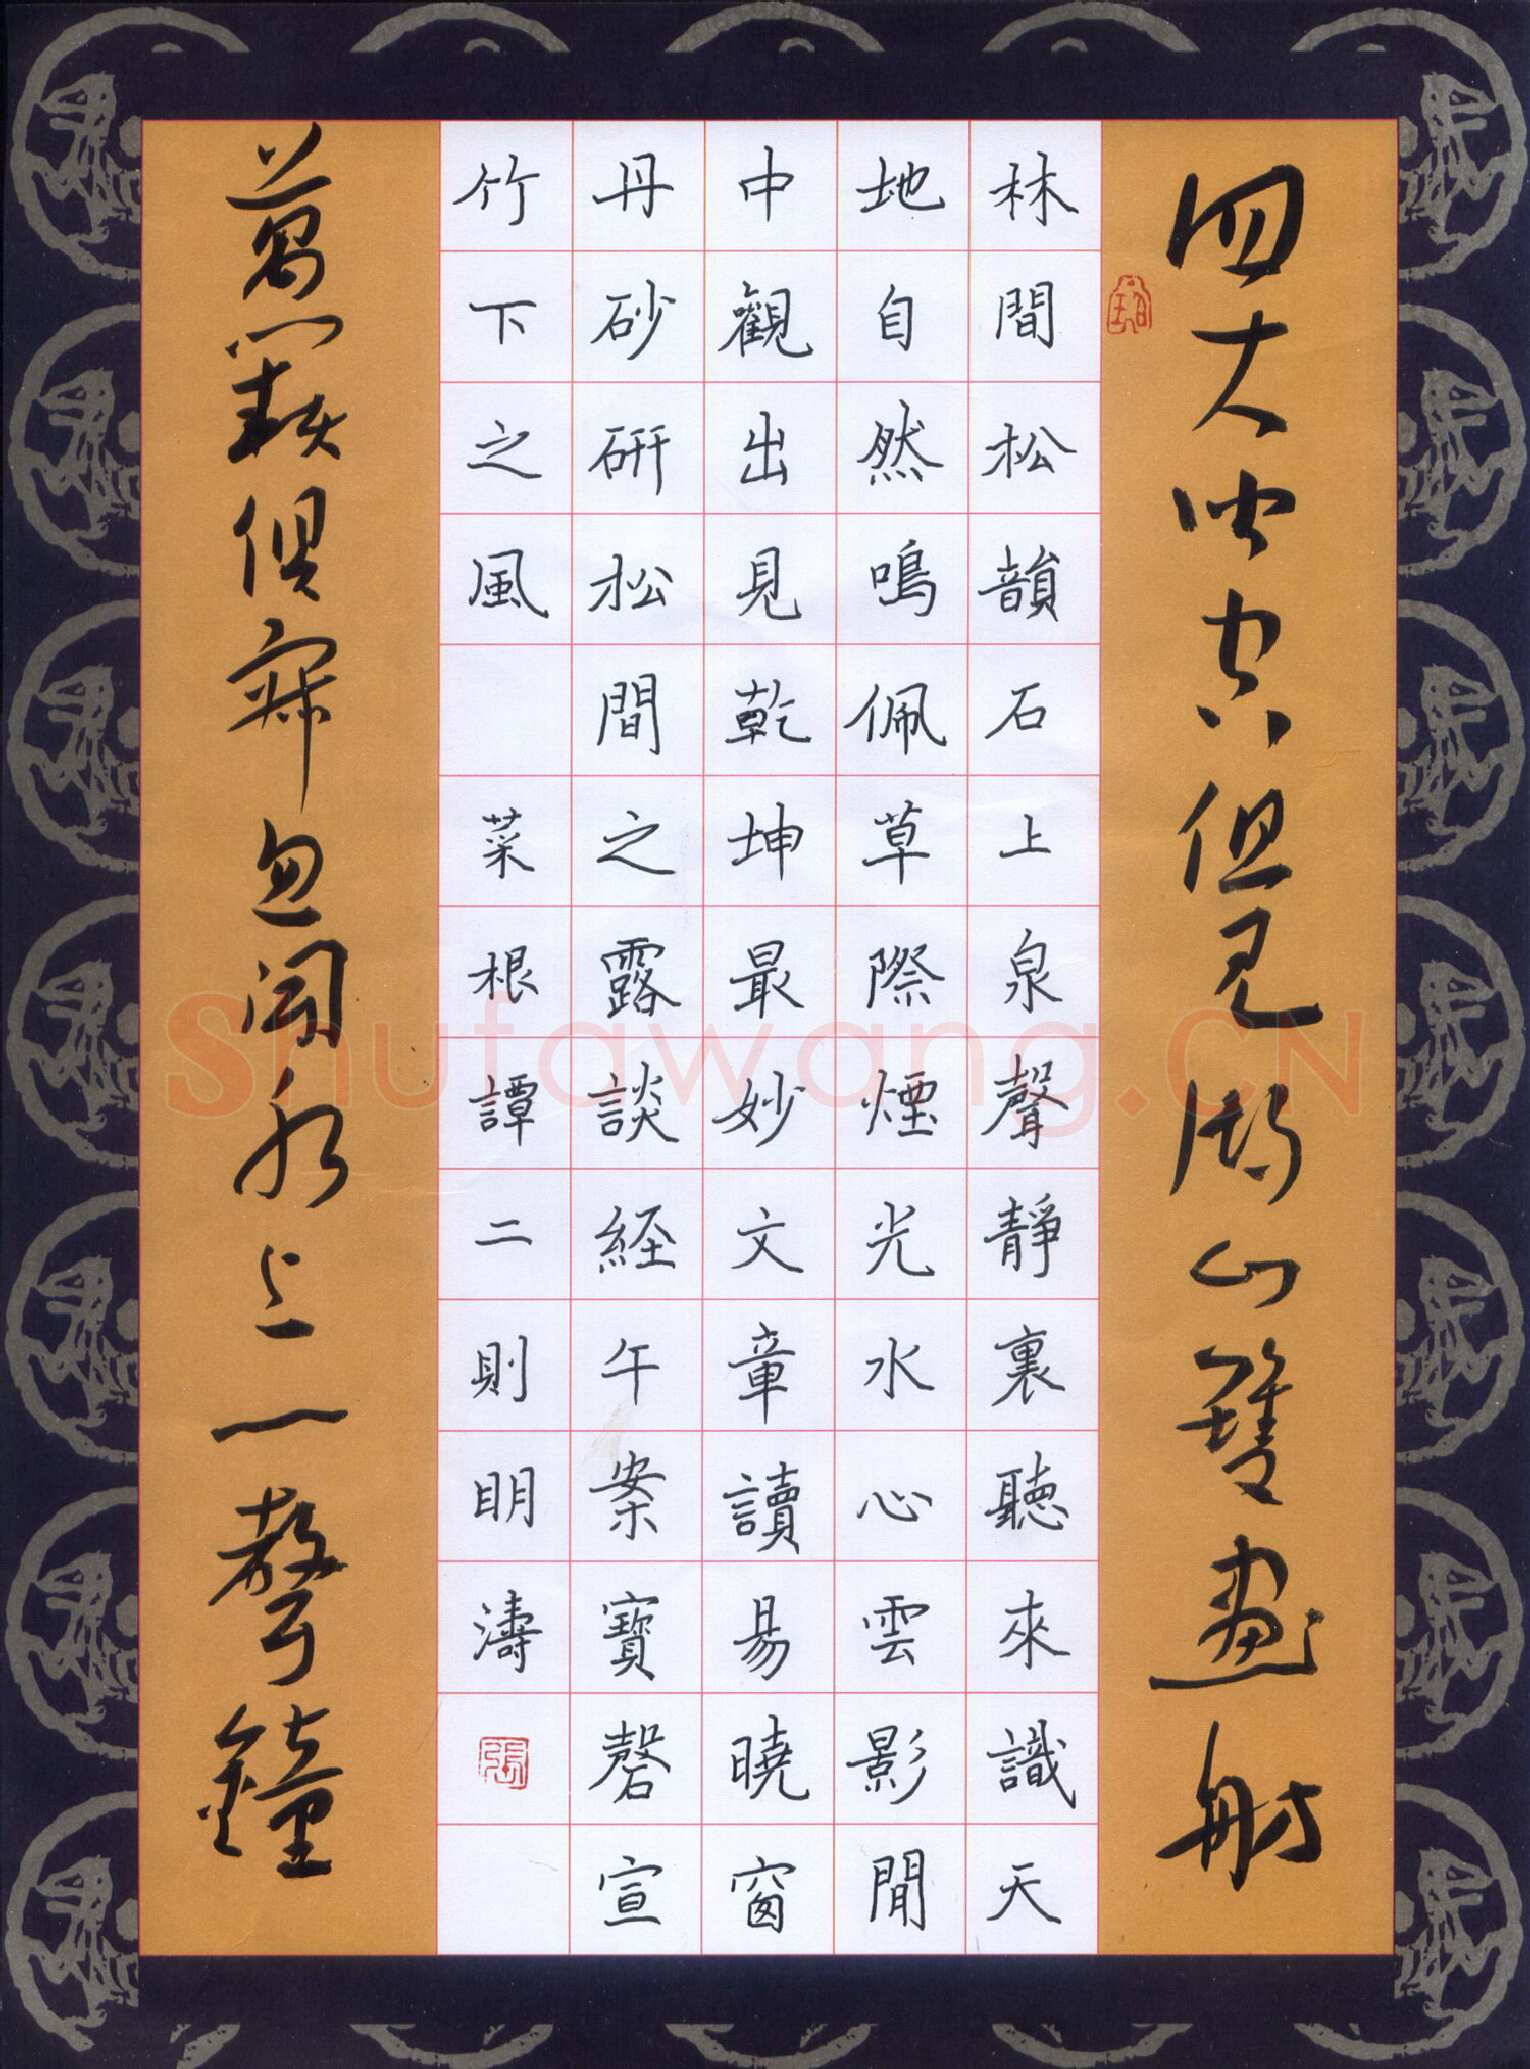 四大皆空但見湖山雙畫舫
林間松韻石上泉聲靜裏聽來識天
地自然鳴佩草際煙光水心雲影閒
中觀出見乾坤最妙文章讀易曉窗
丹砂研松間之露談經午案寶磬宣
竹下之風 菜根譚二則明濤
張
萬籟俱寂忽聞水上一聲鐘
Shufawang.CN